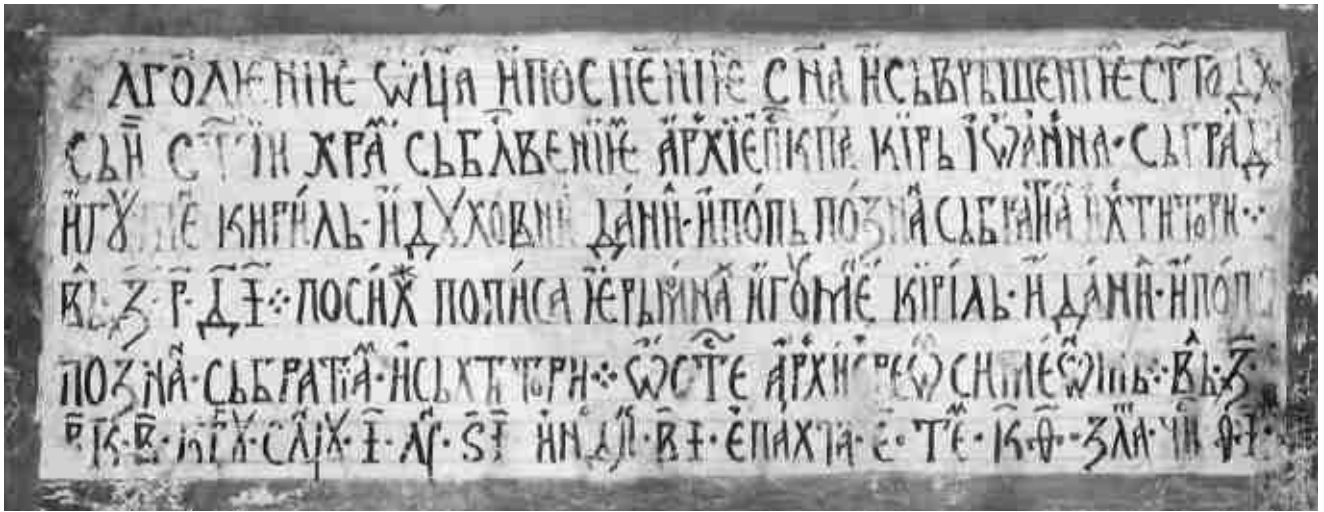 лгоⷣлѥнїѥ ѿца и҆поспѣшенїѥ сн҃а и҆сьврьшенїѥ ст҃годх҃
сьи ст҃їи хра̑ⷨ сьбⷭ҇лвенїѥⷨ а҆рхїепⷭ҇кпа кїрь і҆ѡ҆анна · сьграⷣ
и҆гꙋⷨе҆ кирⷤиль · и҆ дꙋховни да́нїи · и҆по́пь по́ꙁнаⷩ сьбратїаⷨ и҆хтиторⷤи ⁘
вь · ҂ꙁ҃ · р҃ · д҃ і҃ ⁘ поси́хⷤ попи́са і҆ерьмⷩна и҆гоуⷨе́ кїрі́ль · и҆ да́нїи · и҆по́пь
поꙁнаⷩ · сьбратїаⷨ · и҆сьхтїтори ⁘ ѿст҃е а҆рхїереѡ҆ симеѡⷩмь ⁘ вь · ҂ꙁ҃ ·
р҃ к҃ · в҃ · крⷢꙋ · слⷩцꙋ · і҃ · лꙋ · ѕ҃ і҃ индⷦ · в҃ і҃ · е҆пахта · е҃ · теⷨ · к҃ ѳ҃ · ꙁлаⷮ · чи · ѳ҃ і҃ ·